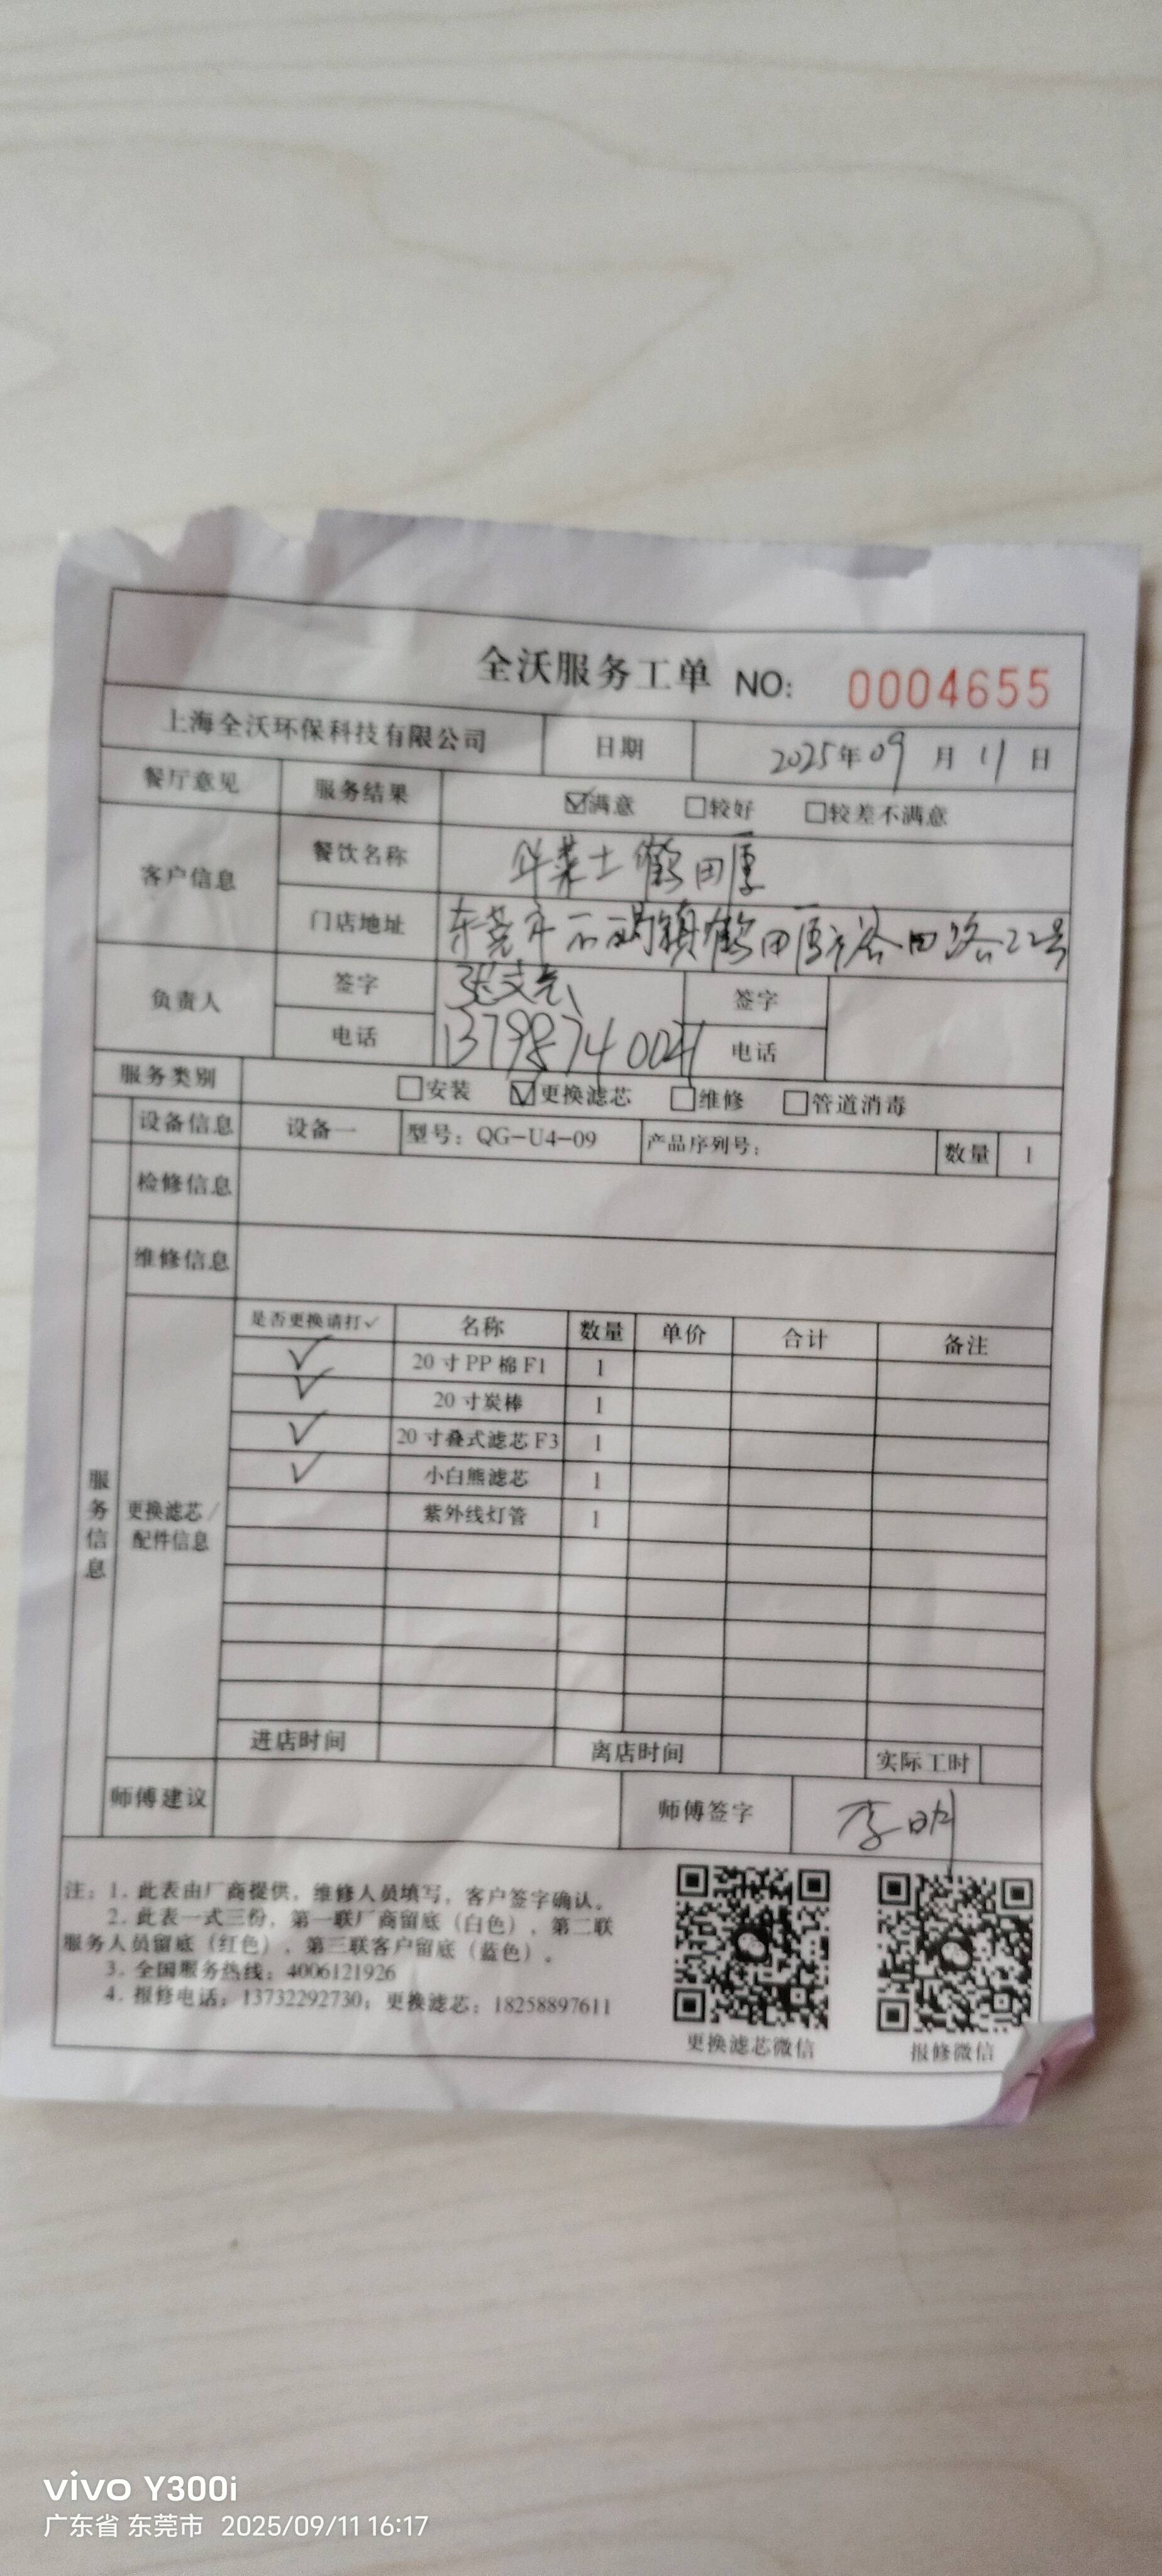 全沃服务工单 NO: 0004655
上海全沃环保科技有限公司 日期 2025年09月11日
餐厅意见 服务结果 ☑满意 □较好 □较差不满意
客户信息 餐饮名称 华莱士鹤田厚
门店地址 东莞市石碣镇鹤田厦 田路22号
负责人 签字 张 签字
电话 13798740041 电话
服务类别 □安装 ☑更换滤芯 □维修 □管道消毒
设备信息 设备一 型号：QG-U4-09 产品序列号： 数量 1
检修信息
维修信息
服务信息
更换滤芯/配件信息
是否更换请打✓ 名称 数量 单价 合计 备注
✓ 20寸PP棉F1 1
✓ 20寸炭棒 1
✓ 20寸叠式滤芯F3 1
✓ 小白熊滤芯 1
紫外线灯管 1
进店时间 离店时间 实际工时
师傅建议 师傅签字 李明
注：1. 此表由厂商提供，维修人员填写，客户签字确认。
2. 此表一式三份，第一联厂商留底（白色），第二联
服务人员留底（红色），第三联客户留底（蓝色）。
3. 全国服务热线：4006121926
4. 报修电话：13732292730；更换滤芯：18258897611
更换滤芯微信 报修微信
vivo Y300i
广东省 东莞市 2025/09/11 16:17